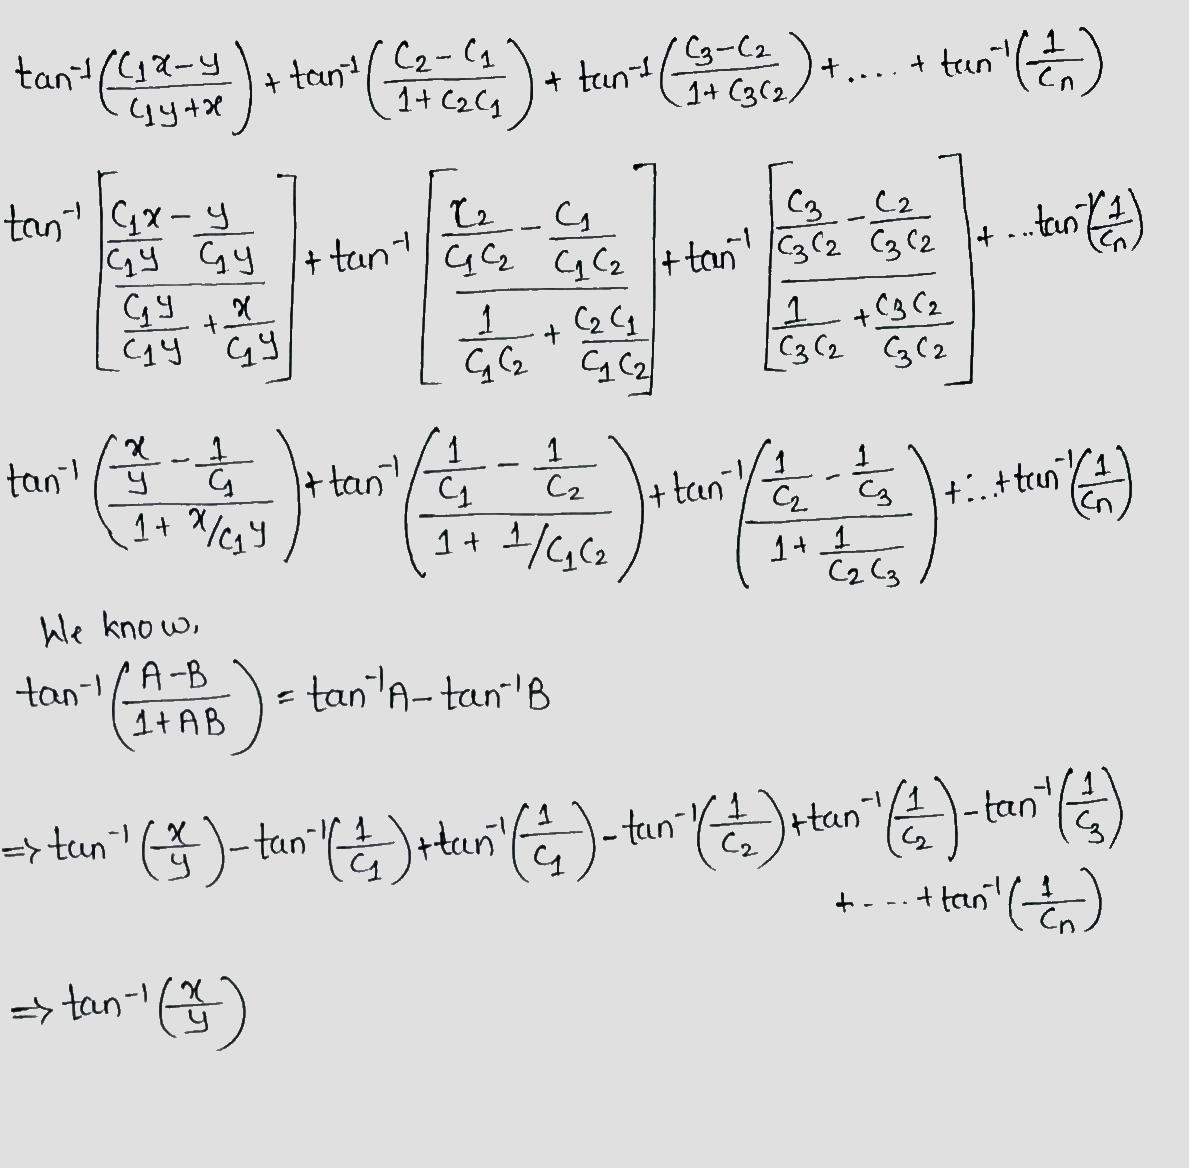 tan⁻¹((C₁x−y)/(C₁y+x)) + tan⁻¹((C₂−C₁)/(1+C₂C₁)) + tan⁻¹((C₃−C₂)/(1+C₃C₂)) + .... + tan⁻¹(1/Cn)
tan⁻¹[(C₁x/C₁y − y/C₁y)/(C₁y/C₁y + x/C₁y)] + tan⁻¹[(C₂/C₁C₂ − C₁/C₁C₂)/(1/C₁C₂ + C₂C₁/C₁C₂)] + tan⁻¹[(C₃/C₃C₂ − C₂/C₃C₂)/(1/C₃C₂ + C₃C₂/C₃C₂)] + ... tan⁻¹(1/Cn)
tan⁻¹((x/y − 1/C₁)/(1 + x/C₁y)) + tan⁻¹((1/C₁ − 1/C₂)/(1 + 1/C₁C₂)) + tan⁻¹((1/C₂ − 1/C₃)/(1 + 1/C₂C₃)) + ... + tan⁻¹(1/Cn)
We know,
tan⁻¹((A−B)/(1+AB)) = tan⁻¹A − tan⁻¹B
⇒ tan⁻¹(x/y) − tan⁻¹(1/C₁) + tan⁻¹(1/C₁) − tan⁻¹(1/C₂) + tan⁻¹(1/C₂) − tan⁻¹(1/C₃)
+ .... + tan⁻¹(1/Cn)
⇒ tan⁻¹(x/y)